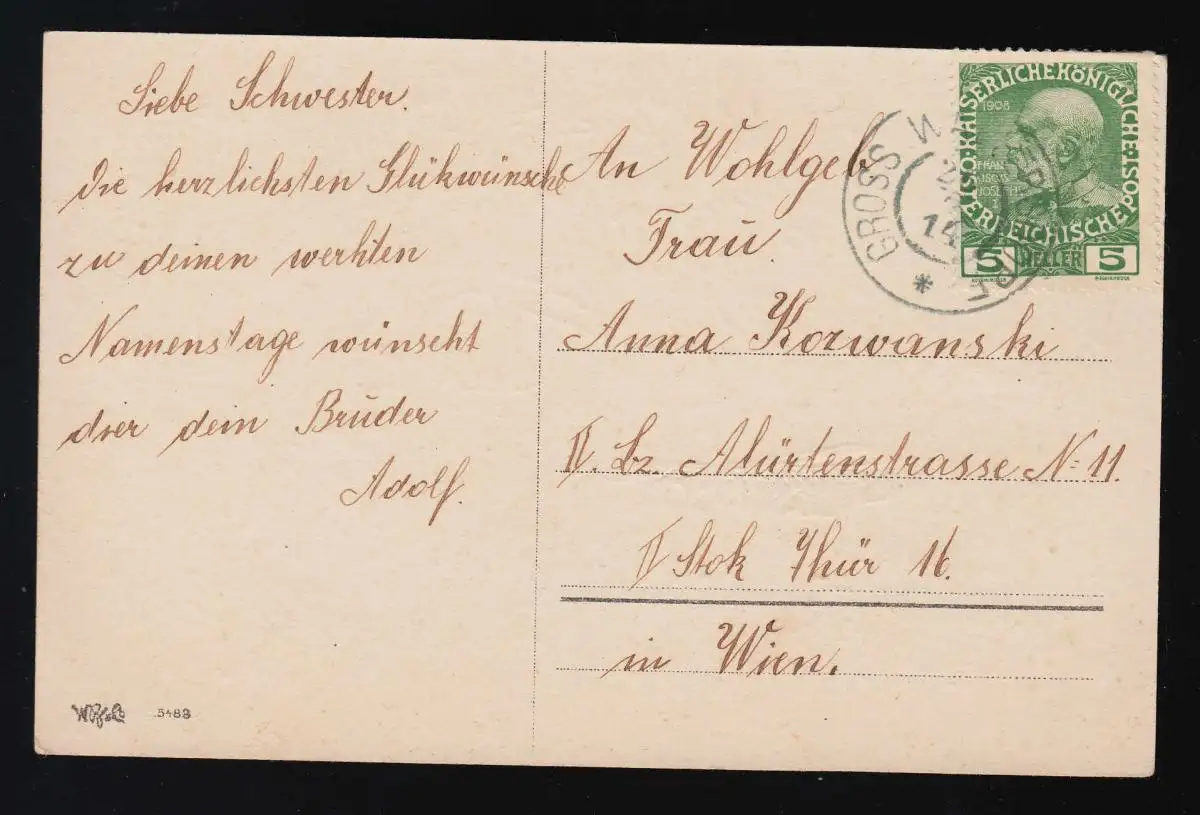 Liebe Schwester.
die herzlichsten Glükwünsche
zu deinen werhten
Namenstage wünscht
dier dein Brüder
Adolf.
5488
An Wohlgeb
Fraū.
Anna Kozwanski
II. Bz. Alürtenstrasse N= 11.
II Stok Thür 16.
in Wien.
KAISERLICHE KÖNIGLICHE
ÖSTERREICHISCHE POST
1908
FRAN
CISCVS
JOSEPH I
5 HELLER 5
GROSS
14